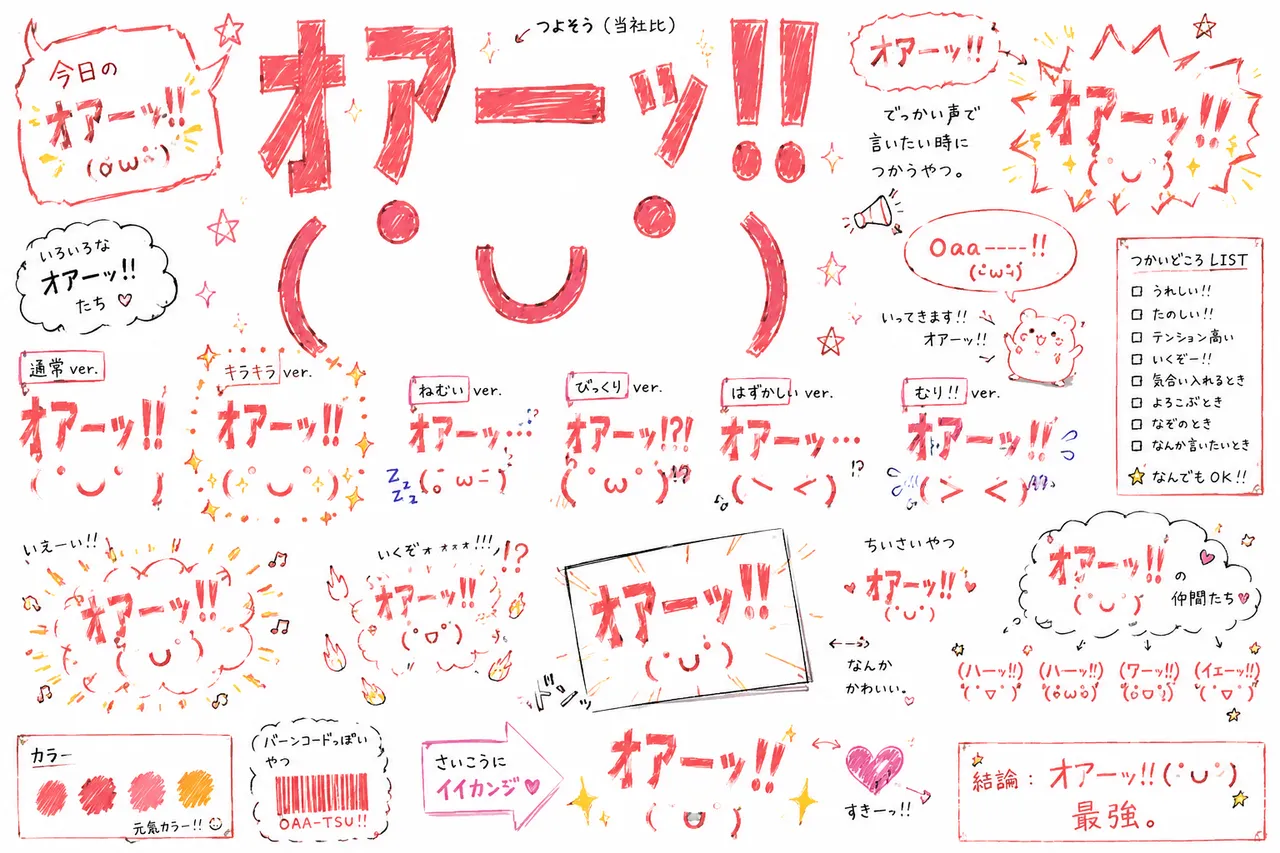 今日の
オアーッ!!
(ȯωȯ)
オアーッ!!
つよそう（当社比）
オアーッ!!
でっかい声で
言いたい時に
つかうやつ。
オアーッ!!
Oaa----!!
いってきます!!
オアーッ!!
つかいどころ LIST
うれしい!!
たのしい!!
テンション高い
いくぞー!!
気合い入れるとき
よろこぶとき
なぞのとき
なんか言いたいとき
なんでもOK!!
いろいろな
オアーッ!!
たち♡
通常 ver.
オアーッ!!
キラキラ ver.
オアーッ!!
ねむい ver.
オアーッ…
Zzz
Zzz
びっくり ver.
オアーッ!?!
はずかしい ver.
オアーッ…
!?
むり!! ver.
オアーッ!!
(＞＜)
いえーい!!
オアーッ!!
いくぞォォォォ!!!
!?
オアーッ!!
オアーッ!!
ドンッ
ちいさいやつ
オアーッ!!
なんか
かわいい。
オアーッ!!
の
仲間たち♡
(ハーッ!!)
(ハーッ!!)
(ワーッ!!)
(イェーッ!!)
カラー
元気カラー!!
バーンコードっぽい
やつ
OAA-TSU!!
さいこうに
イイカンジ♡
オアーッ!!
すきーっ!!
結論：オアーッ!!(˙◡˙)
最強。